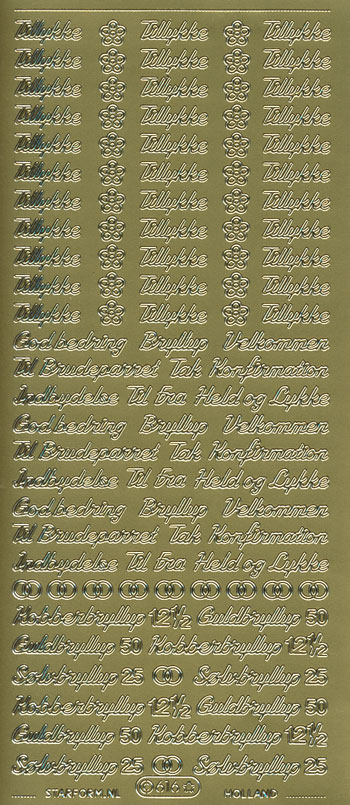 Tillykke Tillykke Tillykke
Tillykke Tillykke Tillykke
Tillykke Tillykke Tillykke
Tillykke Tillykke Tillykke
Tillykke Tillykke Tillykke
Tillykke Tillykke Tillykke
Tillykke Tillykke Tillykke
Tillykke Tillykke Tillykke
Tillykke Tillykke Tillykke
Tillykke Tillykke Tillykke
Tillykke Tillykke Tillykke
God bedring Bryllup Velkommen
Til Brudeparret Tak Konfirmation
Indbydelse Til Fra Held og Lykke
God bedring Bryllup Velkommen
Til Brudeparret Tak Konfirmation
Indbydelse Til Fra Held og Lykke
God bedring Bryllup Velkommen
Til Brudeparret Tak Konfirmation
Indbydelse Til Fra Held og Lykke
Kobberbryllup 12½ Guldbryllup 50
Guldbryllup 50 Kobberbryllup 12½
Sølvbryllup 25 Sølvbryllup 25
Kobberbryllup 12½ Guldbryllup 50
Guldbryllup 50 Kobberbryllup 12½
Sølvbryllup 25 Sølvbryllup 25
STARFORM.NL © 616 HOLLAND